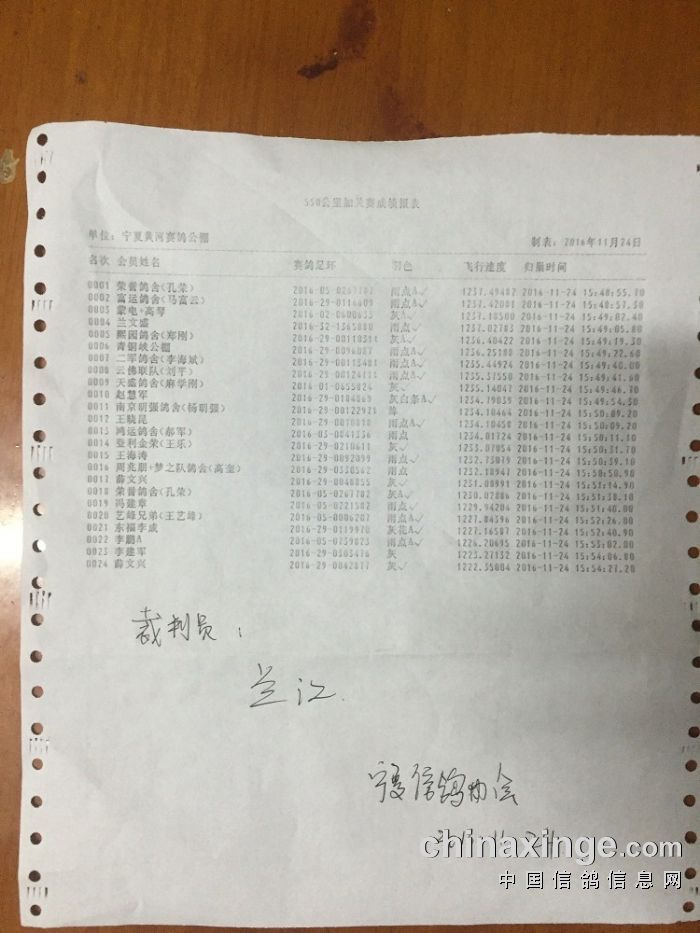 550公里加关赛成绩报表
单位：宁夏黄河赛鸽公棚 制表：2016年11月24日
名次 会员姓名 赛鸽足环 羽色 飞行速度 归巢时间
0001 荣誉鸽舍(孔荣) 雨点A✓ 2016-11-24
0002 富运鸽舍(马富云) 2016-29-0114609 雨点A✓ 2016-11-24
0003 蒙电+高琴 2016-02-0600633 灰A✓ 2016-11-24
0004 兰文盛 2016-32-1365880 雨点✓ 1237.02783 2016-11-24 15:49:05.80
0005 熙园鸽舍(郑刚) 灰✓ 1236.40422 2016-11-24 15:49:19.30
0006 青铜峡公棚 2016-29-0096087 雨点✓ 1236.25180 2016-11-24 15:49:22.60
0007 二军鸽舍(李海斌) 雨点A✓ 1235.44924 2016-11-24 15:49:40.00
0008 云佛联队(刘平) 雨点✓ 2016-11-24 15:49:41.60
0009 天盛鸽舍(麻学刚) 2016-01-0655824 灰✓ 2016-11-24 15:49:46.70
0010 赵慧军 2016-29-0104069 灰白条A✓ 1234.79039 2016-11-24 15:49:54.30
0011 南京明强鸽舍(杨明强) 2016-29-00122921 绛 1234.10464 2016-11-24 15:50:09.20
0012 王晓昆 2016-29-0070818 雨点A✓ 2016-11-24 15:50:09.40
0013 鸿运鸽舍(郝军) 2016-03-0041336 雨点 1234.01724 2016-11-24 15:50:11.10
0014 登利金荣(王乐) 2016-29-0210411 灰✓ 1233.07054 2016-11-24 15:50:31.70
0015 王海涛 2016-29-0092099 雨点✓ 1232.73079 2016-11-24 15:50:39.10
0016 周兆朋+梦之队鸽舍(高奎) 2016-29-0330562 雨点 1232.18947 2016-11-24 15:50:50.90
0017 薛文兴 2016-29-0040855 灰✓ 1231.08991 2016-11-24 15:51:14.90
0018 荣誉鸽舍(孔荣) 2016-05-0267702 灰A✓ 1230.02086 2016-11-24 15:51:38.10
0019 冯建章 2016-05-0221502 雨点✓ 1229.94204 2016-11-24 15:51:40.00
0020 艺峰兄弟(王艺峰) 2016-05-0006207 雨点A✓ 1227.84396 2016-11-24 15:52:26.00
0021 东福李成 2016-29-0119970 灰花A✓ 1227.16507 2016-11-24 15:52:40.90
0022 李鹏A 2016-05-0739023 雨点A✓ 1226.20695 2016-11-24 15:53:02.00
0023 李建军 2016-29-0303476 灰 1223.27132 2016-11-24 15:54:06.80
0024 薛文兴 2016-29-0042077 灰✓ 1222.35004 2016-11-24 15:54:27.20
裁判员：
兰江
宁夏信鸽协会
chinaxinge.com
中国信鸽信息网